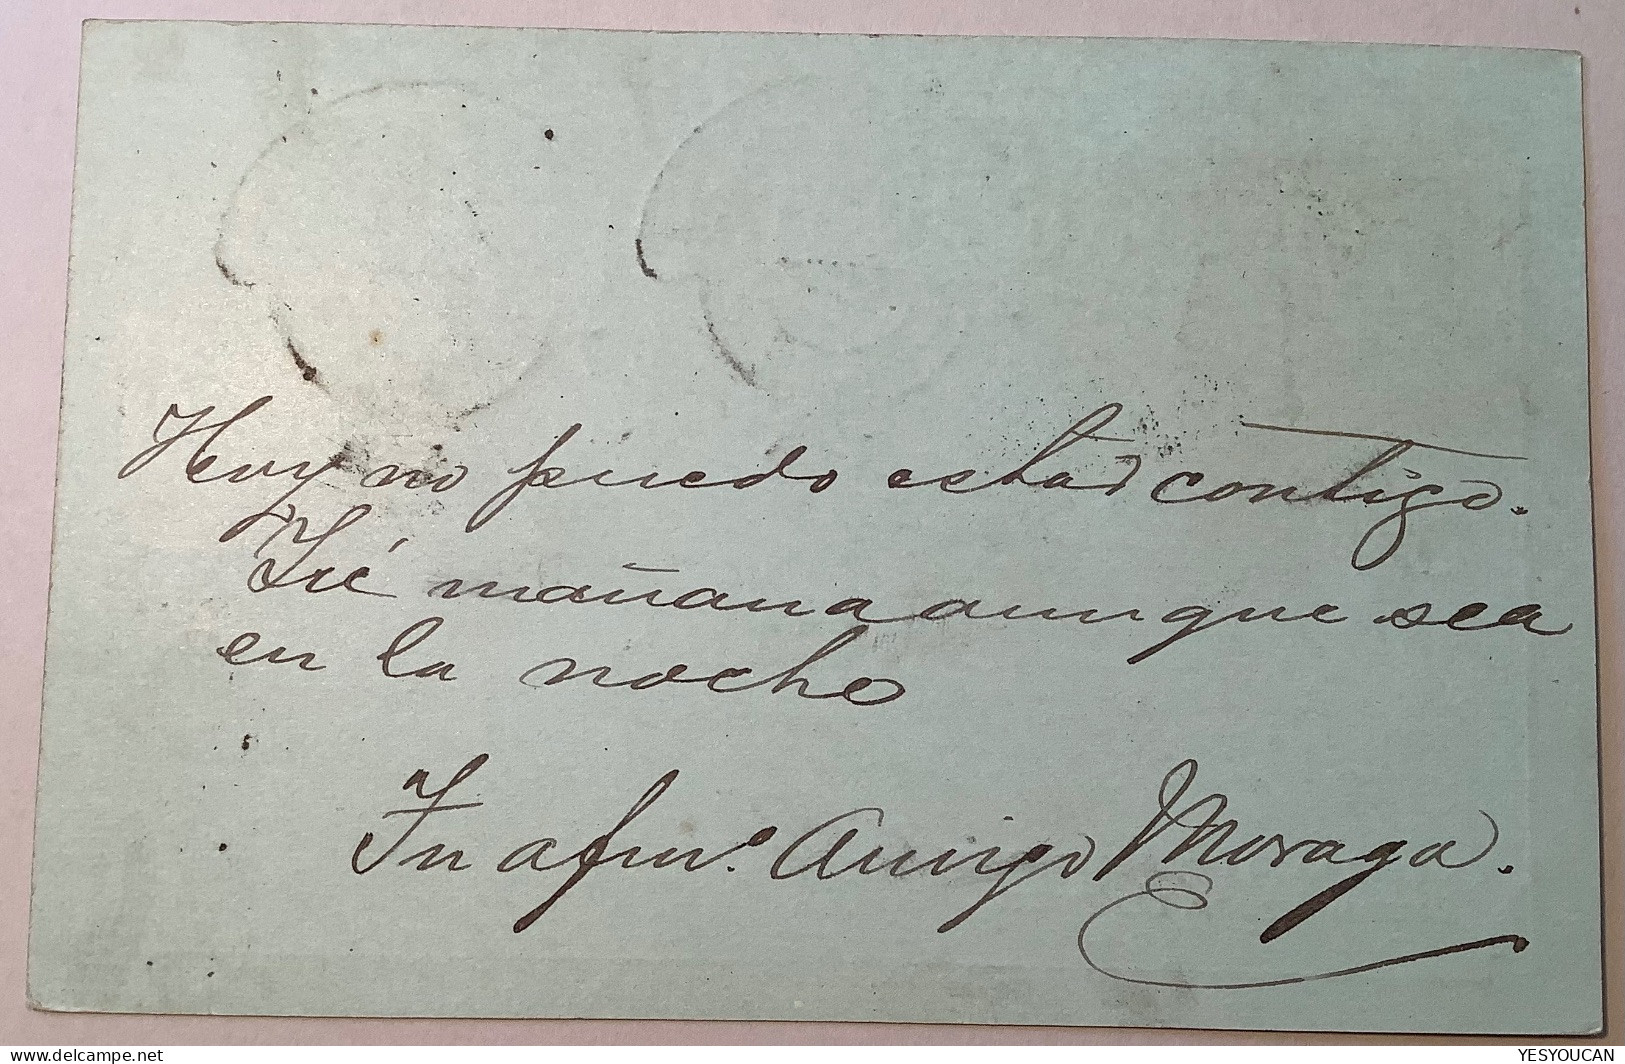 Hoy no puedo estar contigo.
Iré mañana aunque sea
en la noche
Tu afmo. Amigo Moraga.
delcampe.net
YESYOUCAN